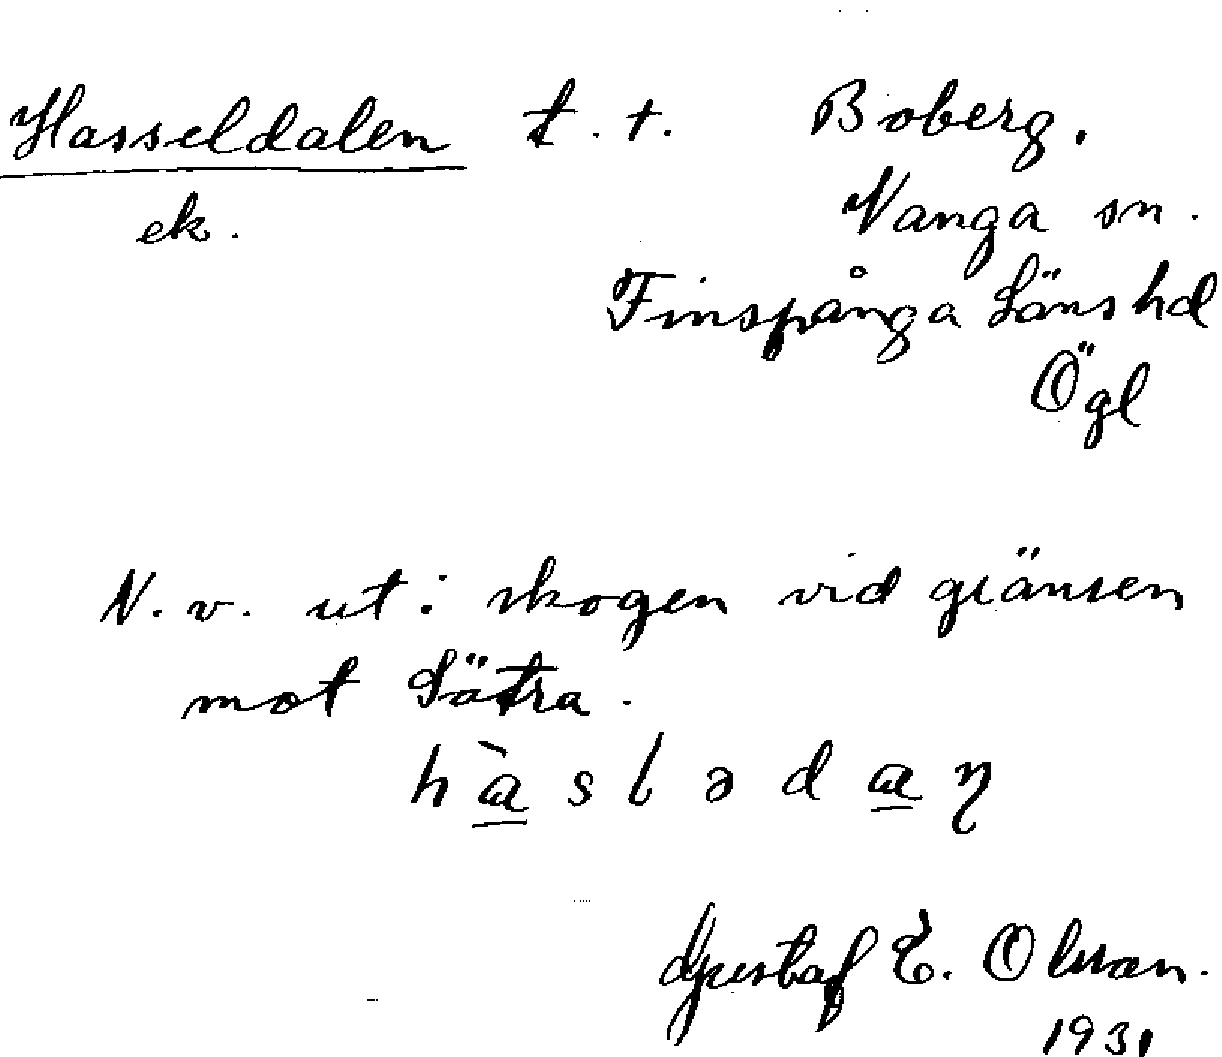 Hasseldalen t. t. Boberg.
ek. Vånga sn.
Finspånga Läns hd
Ögl
N.v. ut i skogen vid gränsen
mot Sätra.
hàslədaṉ
Gustaf E. Olsson.
1931